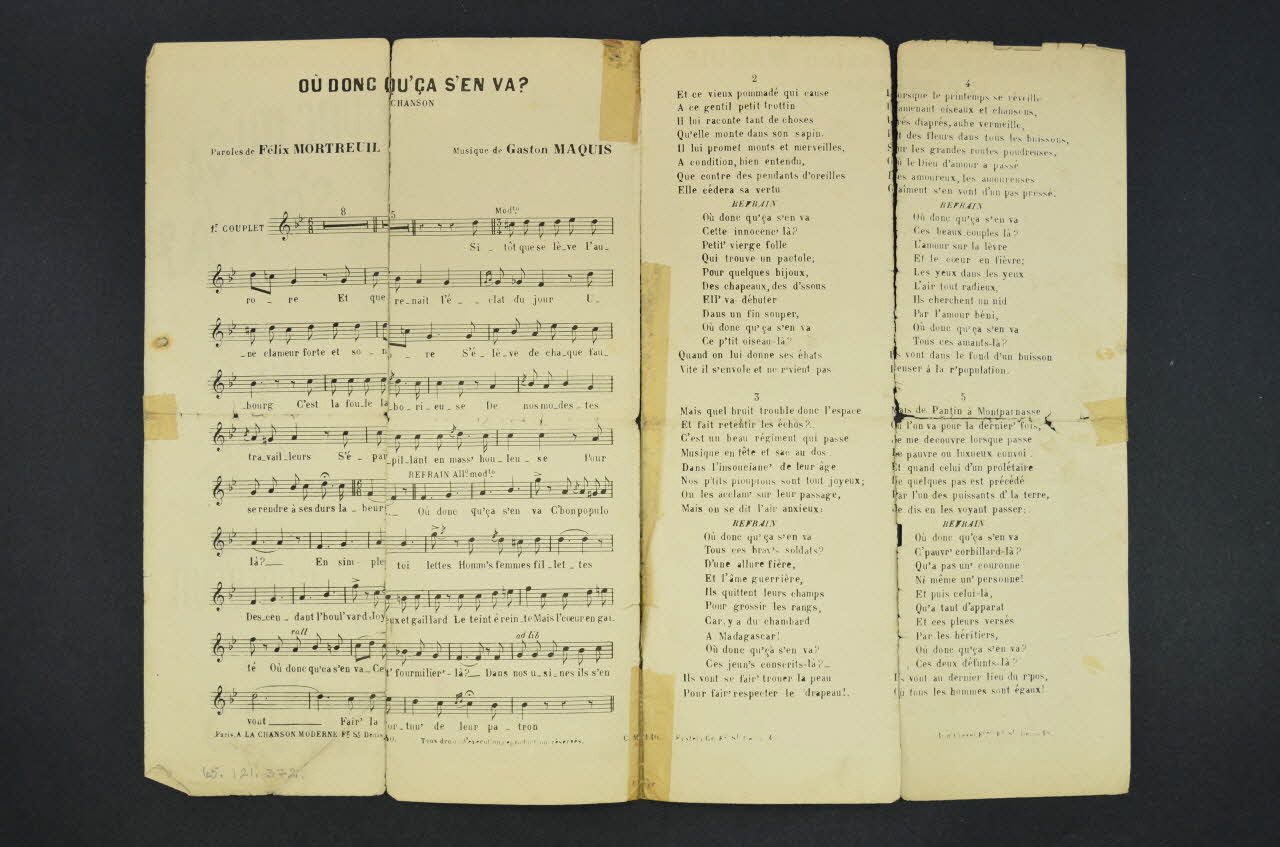 OÙ DONC QU'ÇA S'EN VA?
CHANSON
Paroles de Félix MORTREUIL
Musique de Gaston MAQUIS
1er COUPLET
8
5
Modto
Si_tôt que se lè_ve l'au_
ro_re Et que re_nait l'é__clat du jour U_
_ne clameur forte et so_no_re S'é_lè_ve de cha_que fau_
_bourg C'est la fou_le la_bo_ri_eu_se De nos mo_des_tes
tra_vail_leurs S'é_par_pil_lant en mass' hou_leu_se Pour
REFRAIN Allo modto
se rendre à ses durs la_beurs Où donc qu'ça s'en va C'bon populo
là?__ En sim_ple toi lettes Homm's femmes fil_let_tes
Des_cen_dant l'boul'vard Joy_eux et gaillard Le teint é rein_té Mais l'cœur en gai_
rall
ad lib
té Où donc qu'ca s'en va_ Cet' fourmilier'-là?__ Dans nos u_si_nes ils s'en
vont______ Fair' la for_tun' de leur pa_tron
Paris, A LA CHANSON MODERNE Fg St Denis
Tous droits d'exécution reproduction réservés.
65. 121. 372.
2
Et ce vieux pommadé qui cause
A ce gentil petit trottin
Il lui raconte tant de choses
Qu'elle monte dans son sapin.
Il lui promet monts et merveilles,
A condition, bien entendu,
Que contre des pendants d'oreilles
Elle cédera sa vertu
REFRAIN
Où donc qu'ça s'en va
Cette innocenc' là?
Petit' vierge folle
Qui trouve un pactole;
Pour quelques bijoux,
Des chapeaux, des d'ssous
Ell' va débuter
Dans un fin souper,
Où donc qu'ça s'en va
Ce p'tit oiseau-là?
Quand on lui donne ses ébats
Vite il s'envole et ne r'vient pas
3
Mais quel bruit trouble donc l'espace
Et fait retentir les échos?.
C'est un beau régiment qui passe
Musique en tête et sac au dos
Dans l'insouciane' de leur âge
Nos p'tits pioupious sont tout joyeux;
On les acclam' sur leur passage,
Mais on se dit l'air anxieux:
REFRAIN
Où donc qu'ça s'en va
Tous ces brav's soldats?
D'une allure fière,
Et l'âme guerrière,
Ils quittent leurs champs
Pour grossir les rangs,
Car, y a du chambard
A Madagascar!
Où donc qu'çà s'en va?
Ces jeun's conscrits-là?_
Ils vont se fair' trouer la peau
Pour fair' respecter le drapeau!.
4
Lorsque le printemps se réveille
Ramenant oiseaux et chansons,
Prés diaprés, aube vermeille,
Et des fleurs dans tous les buissons,
Sur les grandes routes poudreuses,
Où le Dieu d'amour a passé
Les amoureux, les amoureuses
Gaîment s'en vont d'un pas pressé.
REFRAIN
Où donc qu'ça s'en va
Ces beaux couples là?
L'amour sur la lèvre
Et le cœur en fièvre;
Les yeux dans les yeux
L'air tout radieux,
Ils cherchent un nid
Par l'amour béni,
Où donc qu'ça s'en va
Tous ces amants-là?
Ils vont dans le fond d'un buisson
Penser à la r'population.
5
Mais de Pantin à Montparnasse
Où l'on va pour la dernier' fois,
Je me decouvre lorsque passe
Le pauvre ou luxueux convoi.
Et quand celui d'un prolétaire
De quelques pas est précédé
Par l'un des puissants d' la terre,
Je dis en les voyant passer:
REFRAIN
Où donc qu'ça s'en va
C'pauvr' corbillard-là?
Qu'a pas un' couronne
Ni même un' personne!
Et puis celui-là,
Qu'a tant d'apparat
Et ces pleurs versés
Par les héritiers,
Où donc qu'ça s'en va?
Ces deux défunts-là?
Ils vont au dernier lieu du r'pos,
Où tous les hommes sont égaux!